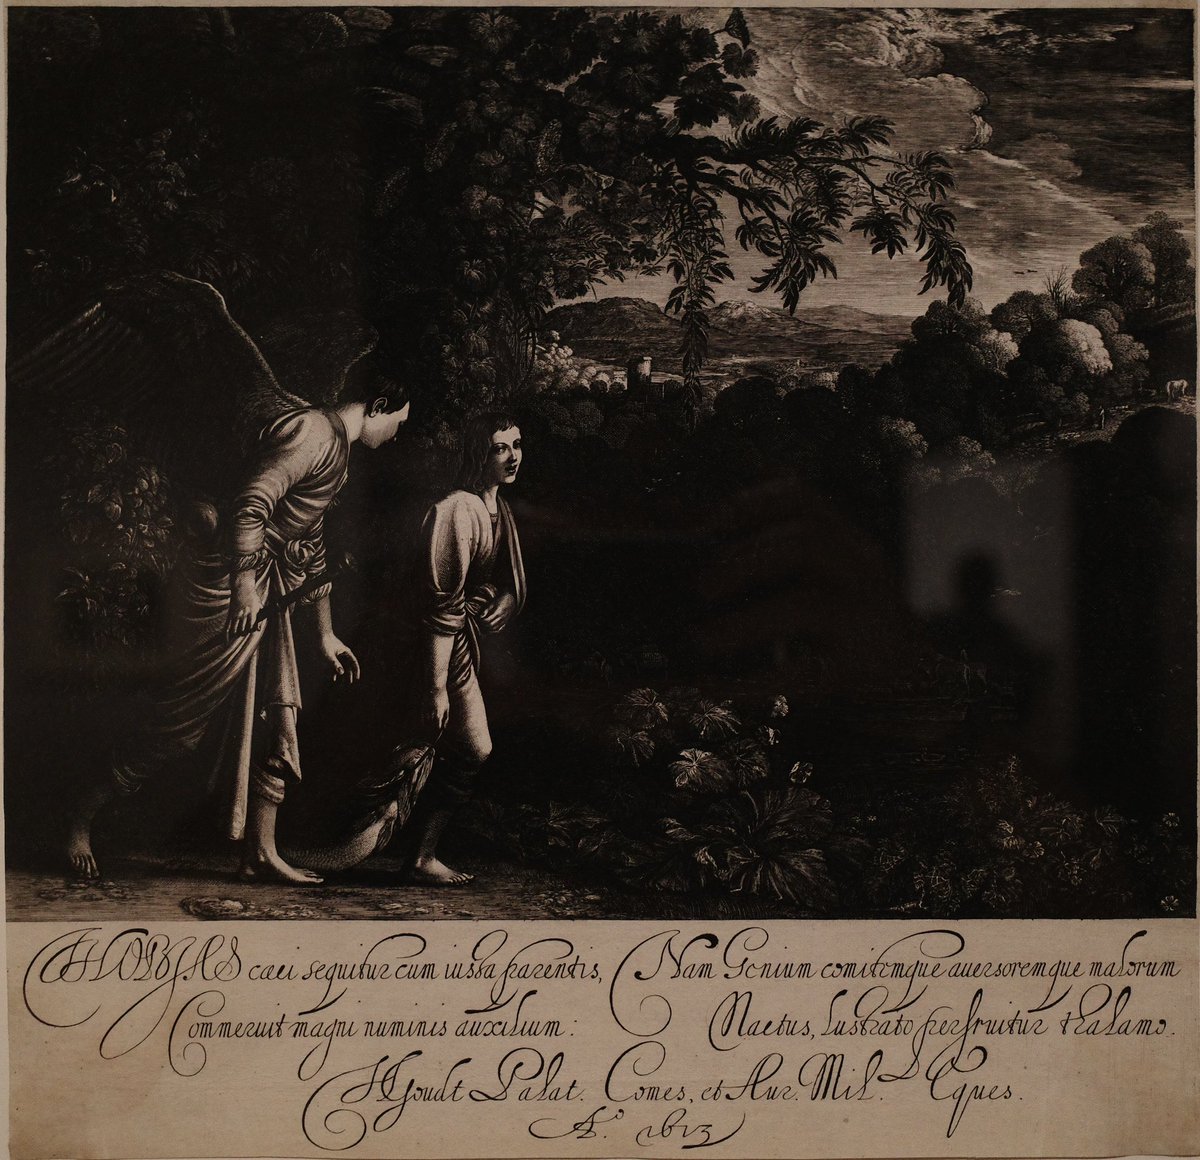 THOBIAS cæci sequitur cum iussa parentis, Nam Genium comitemque auersoremque malorum
Commeruit magni numinis auxilium: Nactus, lustrato perfruitur thalamo.
HGoudt Palat. Comes, et Aur. Mil. Eques.
A.o 1613